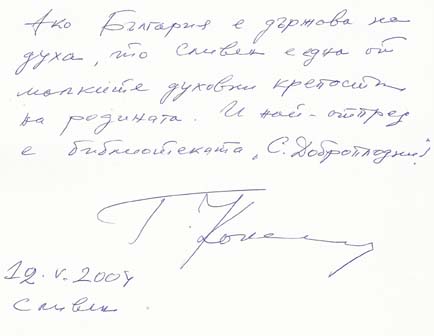 Ако България е държава на
духа, то Сливен е една от
малките духовни крепости
на родината. И най-отпред
е библиотеката „С. Доброплодни"!
12.V.2004
Сливен